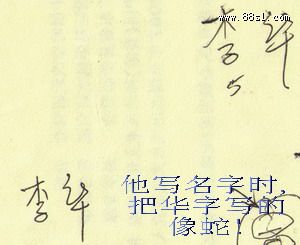 www.88sl.com
李华
李华
他写名字时,
把华字写的
像蛇!